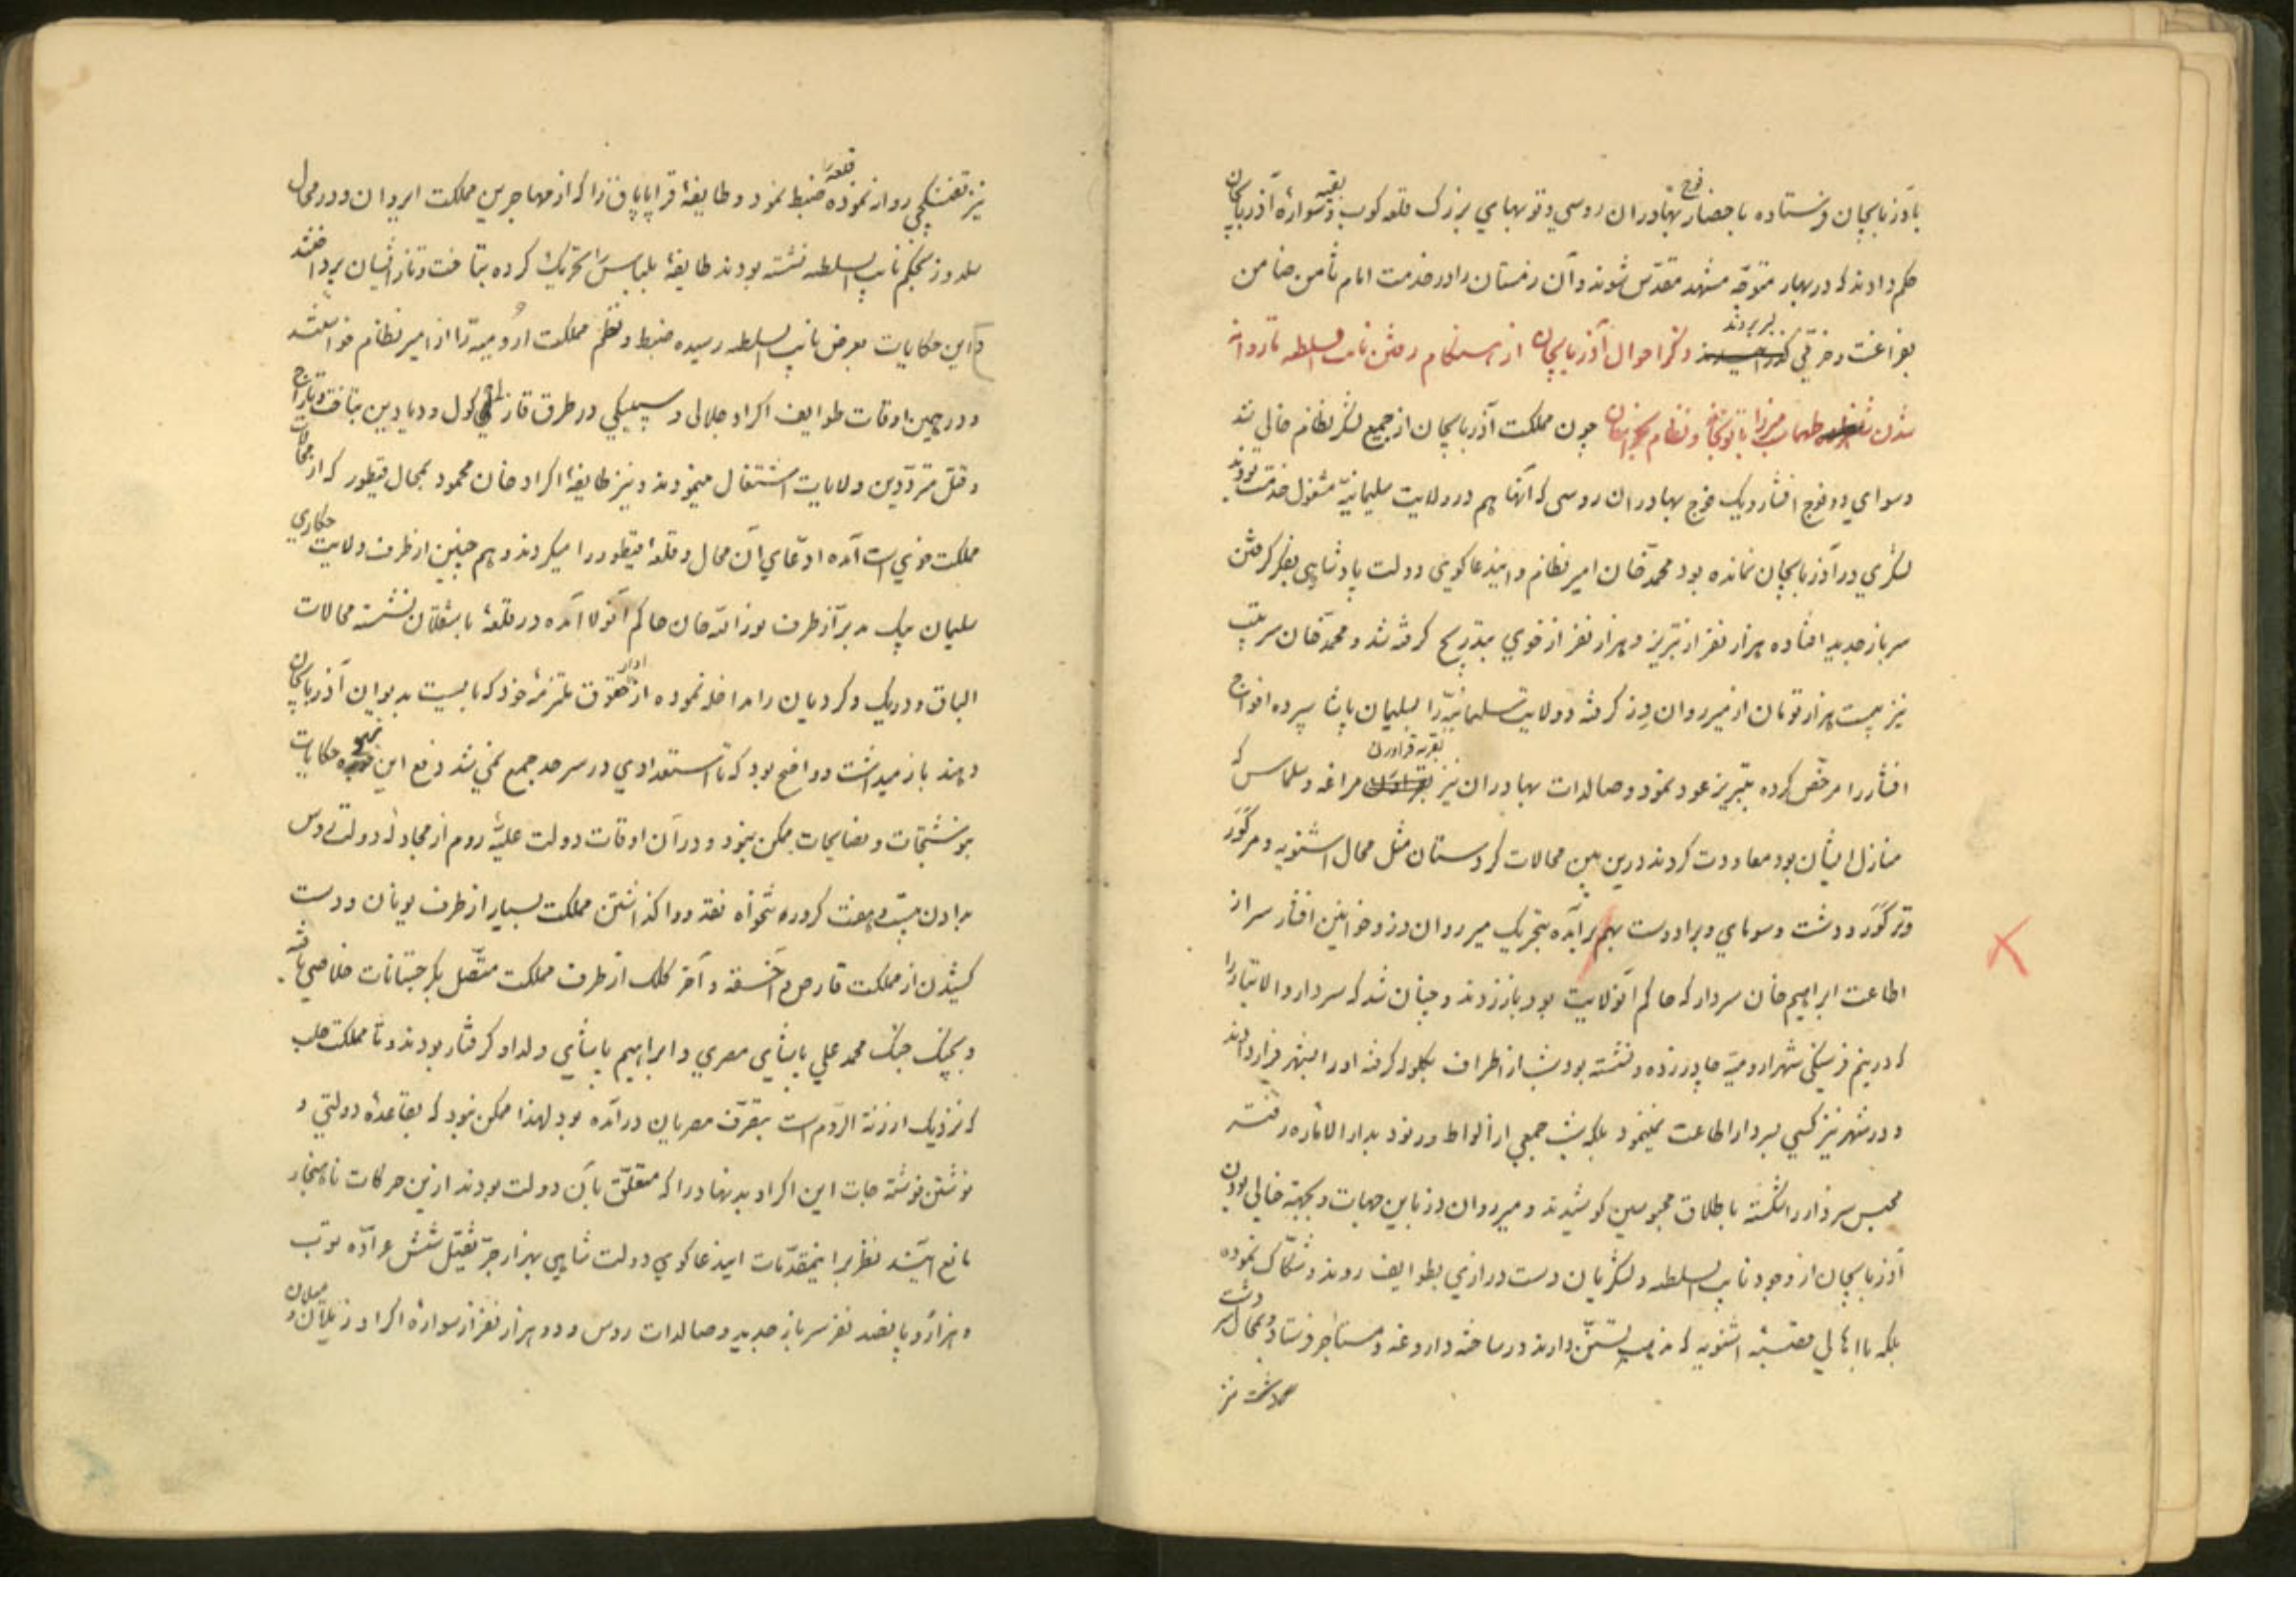 بآذربایجان فرستاده باحضار فوج بهادران روسی و توپهای بزرک قلعه کوب و بقیه سوارهٔ آذربایجان
حکم دادند که در بهار متوجّه مشهد مقدّس شوند و آن زمستان را در خدمت امام ثامن ضامن
بفراغت و خرّمی بسر بردند ذکر احوال آذربایجان از هنکام رفتن نایب السلطه تا روانه
شدن طهماسب میرزا با توپخانه و نظام بخراسان چون مملکت آذربایجان از جمیع لشکر نظام خالی شد
و سوای دو فوج افشار و یک فوج بهادران روسی که آنها هم در ولایت سلیمانیّه مشغول خدمت بودند
لشکری در آذربایجان نمانده بود محمد خان امیر نظام و ایندعاکوی دولت پادشاهی بفکر کرفتن
سرباز جدید افتاده هزار نفر از تبریز و هزار نفر از خوی بتدریج کرفته شد و محمد خان سرتیپ
نیز بیست هزار تومان از میر روان دز کرفته و ولایت سلیمانیّه را بسلیمان پاشا سپرده افواج
افشار را مرخّص کرده بتبریز عود نمود و صالدات بهادران نیز بقریه قراورن مراغه و سلماس که
منازل ایشان بود معاودت کردند درین بین محالات کردستان مثل محال اشنویه و مرکَوَر
و ترکَوَر و دشت و سومای و برادوست بهم برآمده بتحریک میر روان دز و خوانین افشار سر از
اطاعت ابراهیم خان سردار که حاکم آنولایت بود باز زدند و چنان شد که سردار والاتبار را
که در نیم فرسنکی شهر ارومیّه چادر زده و نشسته بود شب از اطراف بکلوله کرفته او را بشهر فرار دادند
و در شهر نیز کسی بسردار اطاعت نمینمود بلکه شب جمعی از الواط و رنود بدار الاماره رفته
محبس سردار را شکسته باطلاق محبوسین کوشیدند و میر روان دز باین جهات و بجهة خالی بودن
آذربایجان از وجود نایب السلطه و لشکریان دست درازی بطوایف روند و شکاک نموده
بلکه با اهالی قصبهٔ اشنویه که مذهب تسنّن دارند در ساخته داروغه و مستاجر فرستاد و بمحال دشت
نیز تفنکچی روانه نموده قلعه را ضبط نمود و طایفهٔ قراپاپاق را که از مهاجرین مملکت ایروان و در محال
سلدوز بحکم نایب السلطه نشسته بودند طایفهٔ بلباس را تحریک کرده بتاخت و تاز ایشان پرداختند
و این حکایات بعرض نایب السلطه رسیده ضبط و نظم مملکت ارومیّه را از امیر نظام خواستند
و در همین اوقات طوایف اکراد جلالی و سپیکی در طرق قازلی کول و دیادین بتاخت و تاراج
و قتل متردّدین ولایات اشتغال مینمودند و نیز طایفهٔ اکراد خان محمود بمحال قطور که از محالات
مملکت خوی است آمده ادّعای آن محال و قلعهٔ قطور را میکردند و هم چنین از طرف ولایت حکاری
سلیمان بیک مدبر از طرف نوراله خان حاکم آنولا آمده در قلعهٔ باشقلان نشسته محالات
الباق و دریک و کردیان را مداخله نموده از ادای حقوق ملتزمهٔ خود که بایست بدیوان آذربایجان
دهند باز میداشت و واضح بود که تا استعدادی در سرحد جمع نمی شد دفع این نحو حکایات
بنوشتجات و نصایحات ممکن نبود و در آن اوقات دولت علیّهٔ روم از مجادلهٔ دولت روس
و دادن بیست و هفت کرور تنخواه نقد و واکذاشتن مملکت بسیار از طرف یونان و دست
کشیدن از مملکت قارص و آخسقه و آخر کلک از طرف مملکت متّصل بکرجستانات خلاصی یافته
و بجنک محمد علی پاشای مصری و ابراهیم پاشای ولد او کرفتار بودند و تا مملکت حلب
که نزدیک ارزنة الرّوم است بتصرّف مصریان در آمده بود لهذا ممکن نبود که بقاعدهٔ دولتی و
نوشتن نوشته جات این اکراد بدنهاد را که متعلّق بآن دولت بودند ازین حرکات ناهنجار
مانع آیند نظر براینمقدّمات ایندعاکوی دولت شاهی بهزار جرّ ثقیل شش عرّاده توپ
و هزار و پانصد نفر سرباز جدید و صالدات روس و دو هزار نفر از سوارهٔ اکراد زیلان و میلان و